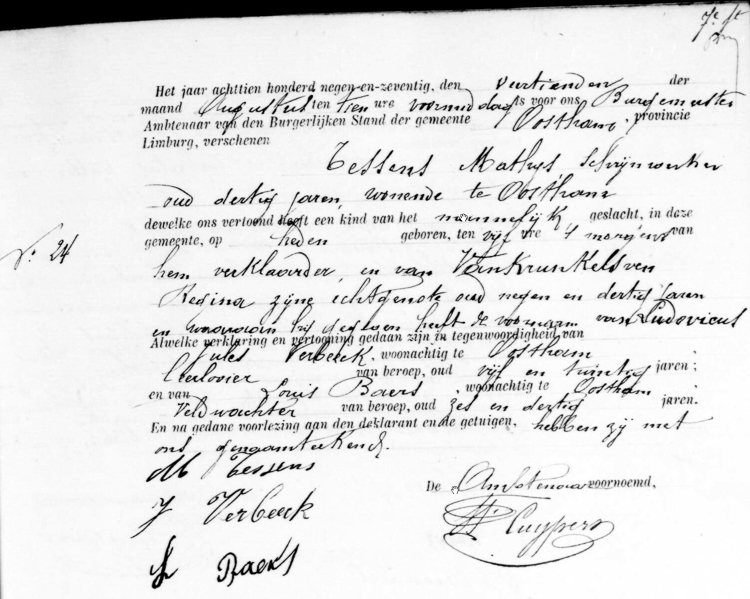 Het jaar achttien honderd negen-en-zeventig, den Veertienden der
maand Augustus ten tien ure voormiddags voor ons Burgemeester
Ambtenaar van den Burgerlijken Stand der gemeente Oostham, provincie
Limburg, verschenen
Tessens Mathys Schrijnwerker
oud dertig jaren, wonende te Oostham
dewelke ons vertoond heeft een kind van het mannelijk geslacht, in deze
gemeente, op heden geboren, ten vijf ure 's morgens van
No 24
hem verklaarder, en van Vankrunkelsven
Regina zijne echtgenote oud negen en dertig jaren
en waaraan hij gegeven heeft de voornaam van Ludovicus
Alwelke verklaring en vertooning gedaan zijn in tegenwoordigheid van
Jules Verbeeck, woonachtig te Oostham
van beroep, oud vijf en twintig jaren;
en van Louis Baers, woonachtig te Oostham
Veldwachter van beroep, oud zes en dertig jaren.
En na gedane voorlezing aan den deklarant en de getuigen, hebben zij met
ons genaamteekend.
M Tessens
De Ambtenaar voornoemd,
J Verbeeck
Cuypers
L Baers